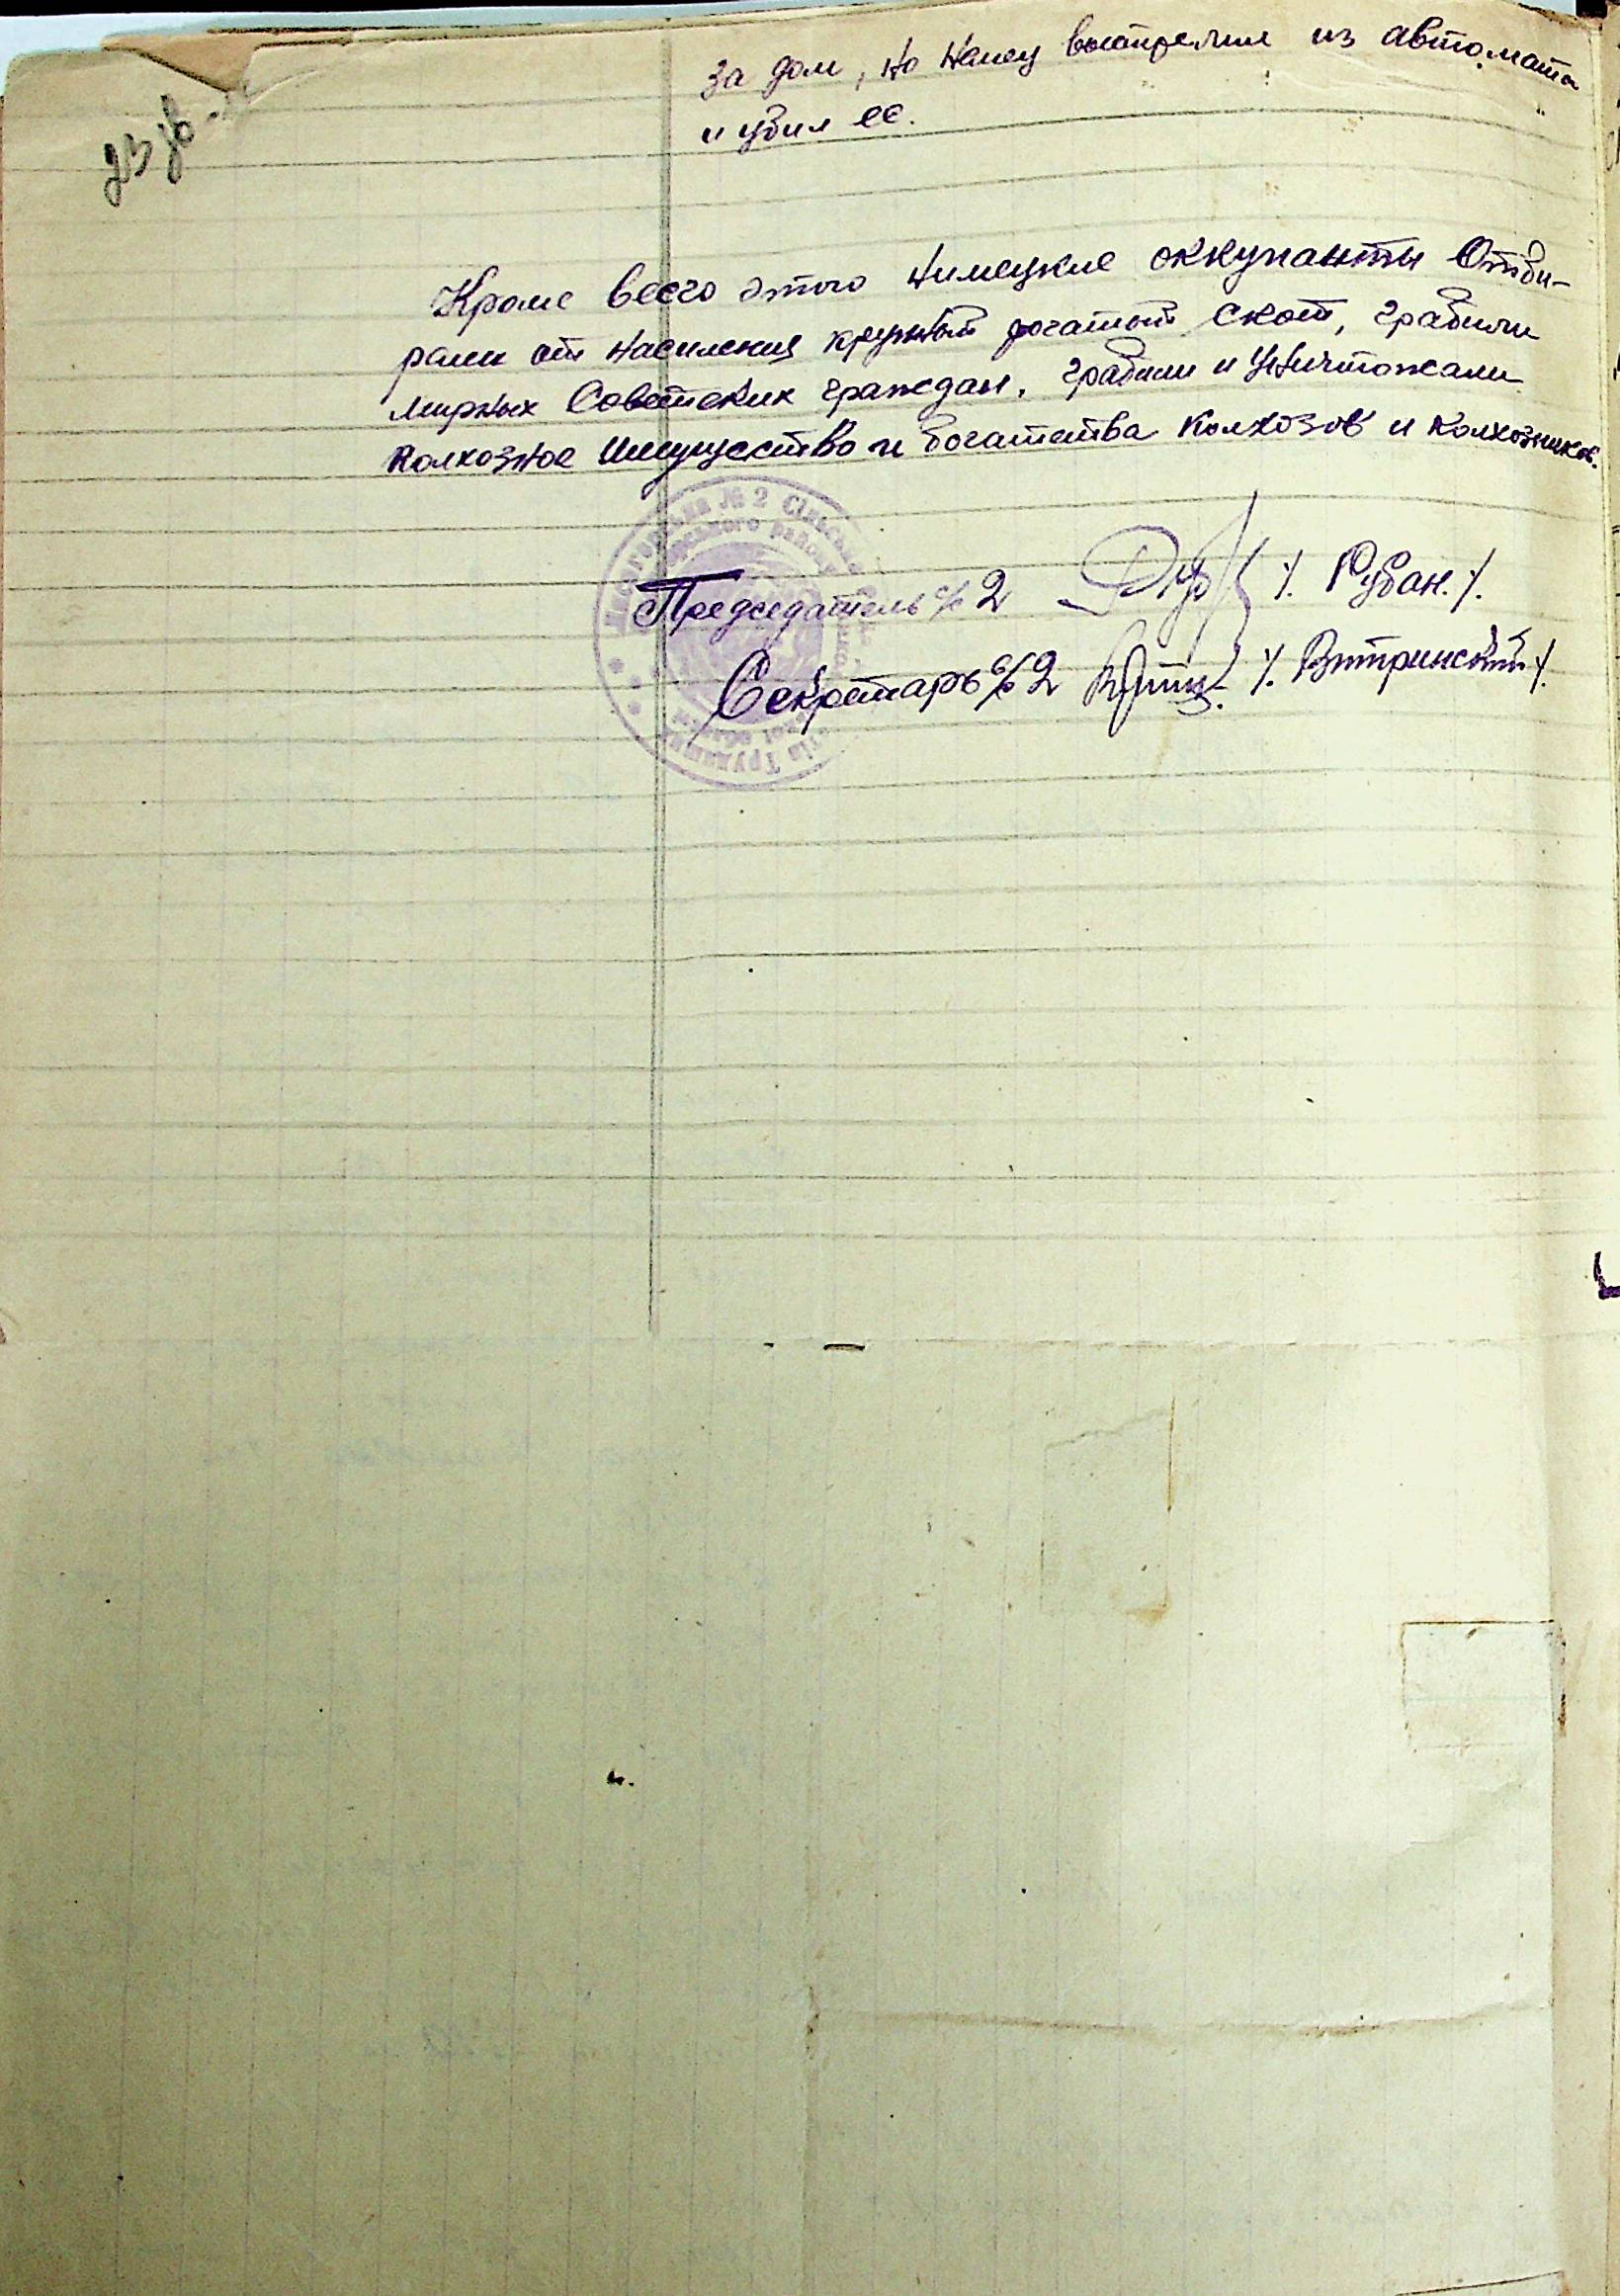 за дом, но немец выстрелил из автомата
и убил ее.
Кроме всего этого Нимецкие оккупанты Отби-
рали от насиления крупный рогатый скот, грабили
мирных Советских граждан, грабили и уничтожали
колхозное имущество и богатства колхозов и колхозников.
№ 2 Сільська
району
Председатель с/с 2 /. Рубан ./.
Секретарь с/с 2 /.
Трудящих